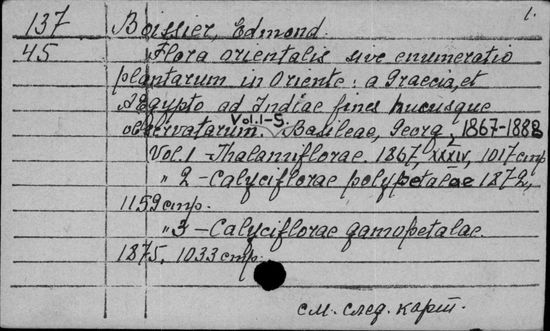 1.
137 Boissier, Edmond.
45 Flora orientalis sive enumeratio
plantarum in Oriente: a Graecia, et
Aegypto ad Indiae fines hucusque
observatarum. Vol. 1-5. Basileae, Georg, 1867-1888
Vol. 1 - Thalamiflorae. 1867, XXXIV, 1017 стр
" 2 - Calyciflorae polypetalae 1872,
1159 стр.
" 3 - Calyciflorae gamopetalae.
1875, 1033 стр.
см. след. карт.